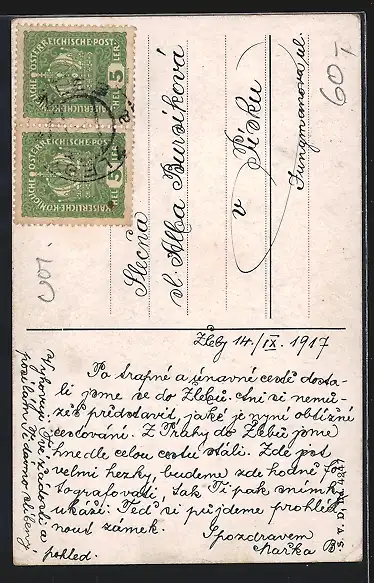 KAISERLICHE KÖNIGLICHE ÖSTERREICHISCHE POST
5 HELLER 5
KAISERLICHE KÖNIGLICHE ÖSTERREICHISCHE POST
5 HELLER 5
60,-
Slečna
sl. Alba Bursíková
v Písku
Jungmanova ul.
Žleby 14./IX. 1917
Po trapné a únavné cestě dosta-
li jsme se do Žlebů. Ani si nemů-
žeš představit, jaké je nyní obtížné
cestování. Z Prahy do Žlebů jsme
hnedle celou cestu stáli. Zde jest
velmi hezky, budeme zde hodně fo-
tografovati, tak Ti pak snímky
ukáži. Teď si půjdeme prohléd-
nout zámek.
S pozdravem
Mařka B
Vyhovuji Tvé žádosti a
posílám Ti dávno slíbený
pohled.